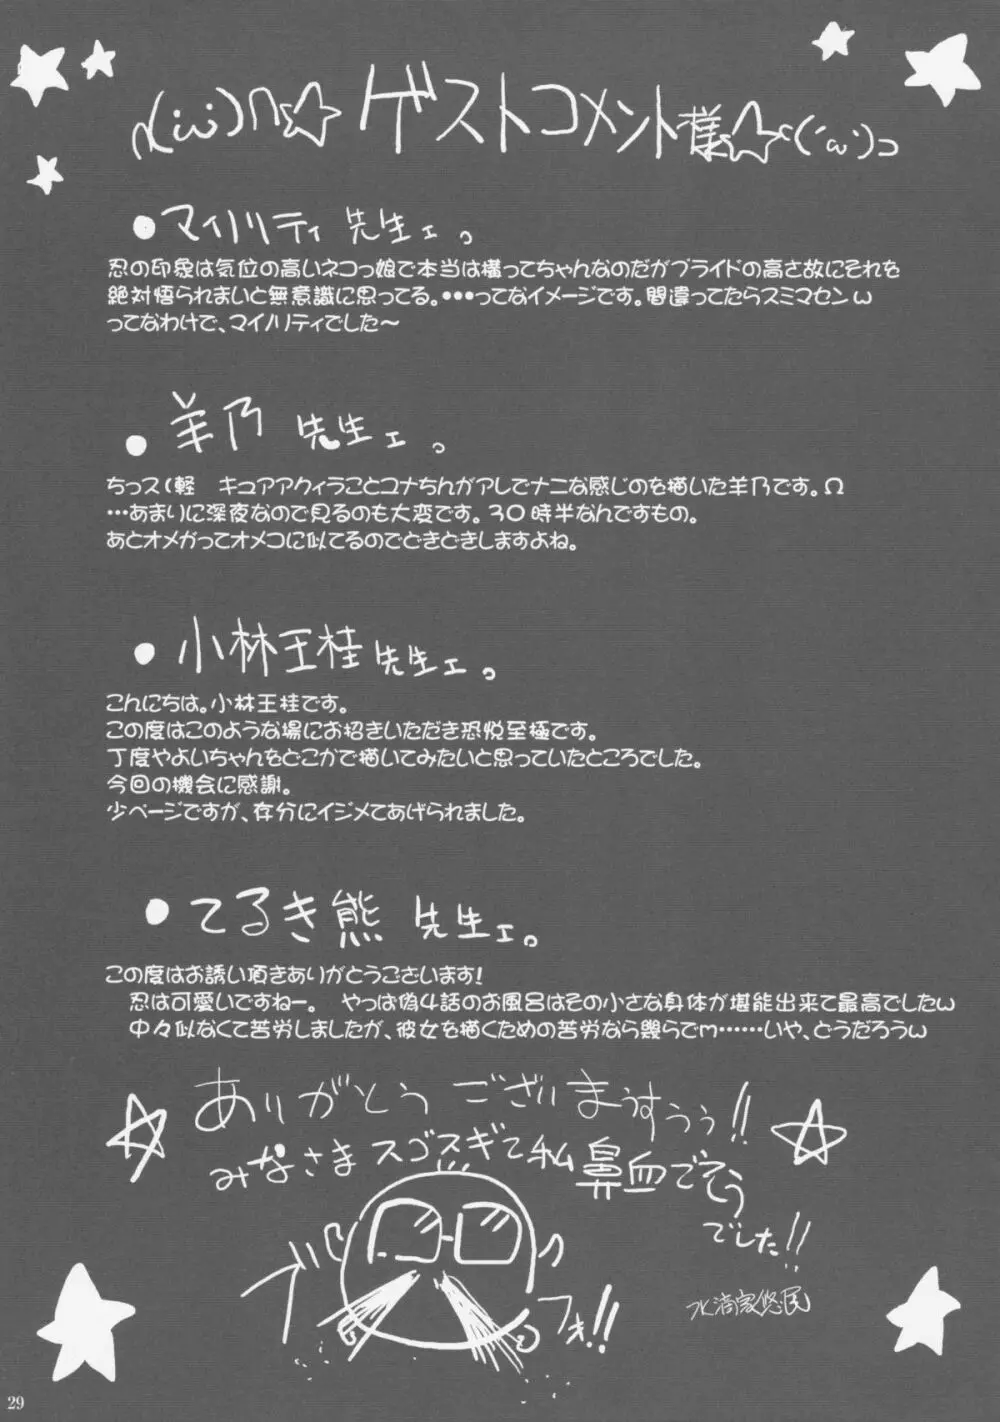 ก(´ω`)∩☆ ゲストコメント様☆⊂(´ω`)⊃
●マイノリティ 先生ェ。
忍の印象は気位の高いネコっ娘で本当は構ってちゃんなのだがプライドの高さ故にそれを
絶対悟られまいと無意識に思ってる。・・・ってなイメージです。間違ってたらスミマセンω
ってなわけで、マイノリティでした~
●羊乃 先生ェ。
ちっス(軽 キュアアクィラことユナちんがアレでナニな感じのを描いた羊乃です。Ω
…あまりに深夜なので見るのも大変です。30時半なんですもの。
あとオメガってオメコに似てるのでどきどきしますよね。
●小林王桂 先生ェ。
こんにちは。小林王桂です。
この度はこのような場にお招きいただき恐悦至極です。
丁度やよいちゃんをどこかで描いてみたいと思っていたところでした。
今回の機会に感謝。
少ページですが、存分にイジメてあげられました。
●てるき熊 先生ェ。
この度はお誘い頂きありがとうございます!
忍は可愛いですねー。 やっぱ偽4話のお風呂はその小さな身体が堪能出来て最高でしたω
中々似なくて苦労しましたが、彼女を描くための苦労なら幾らでm……いや、どうだろうω
ありがとう ございまぅすぅぅ!!
みなさまスゴスギて私鼻血でそう
でした!!
ブ
フォ!!
水滴家悠民
29